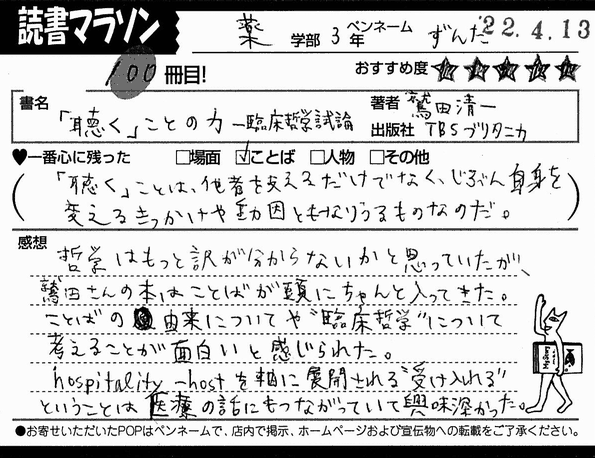 読書マラソン
薬 学部 3年 ペンネーム ずんだ 22.4.13
100冊目! おすすめ度 ★★★★★
書名 「聴く」ことの力 ―臨床哲学試論 著者 鷲田清一
出版社 TBSブリタニカ
♥一番心に残った □場面 ☑ことば □人物 □その他
(「聴く」ことは、他者を支えるだけでなく、じぶん自身を
変えるきっかけや動因ともなりうるものなのだ。)
感想
哲学はもっと訳が分からないかと思っていたが、
鷲田さんの本はことばが頭にちゃんと入ってきた。
ことばの由来についてや"臨床哲学"について
考えることが面白いと感じられた。
hospitality―hostを軸に展開される"受け入れる"
ということは医療の話にもつながっていて興味深かった。
●お寄せいただいたPOPはペンネームで、店内で掲示、ホームページおよび宣伝物への転載をご了承ください。